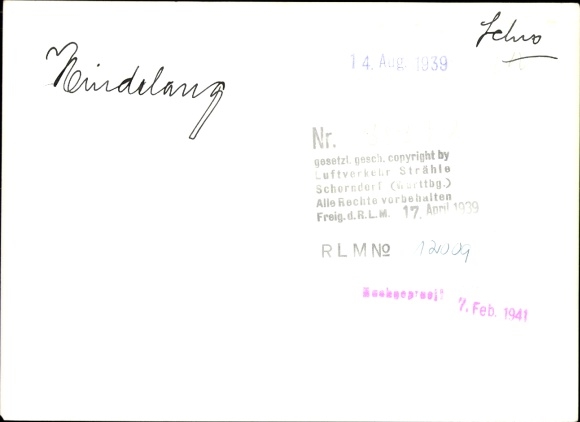 14. Aug. 1939
Hindelang
Nr.
gesetzl. gesch. copyright by
Luftverkehr Strähle
Schorndorf (Württbg.)
Alle Rechte vorbehalten
Freig. d. R.L.M. 17. April 1939
RLM No 12009
7. Feb. 1941